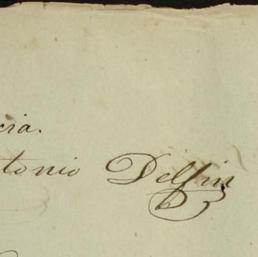 cia.
tonio Delfin